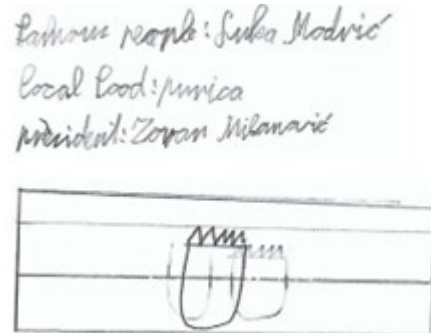 Famous people: Luka Modrić
local food: purica
president: Zoran Milanović